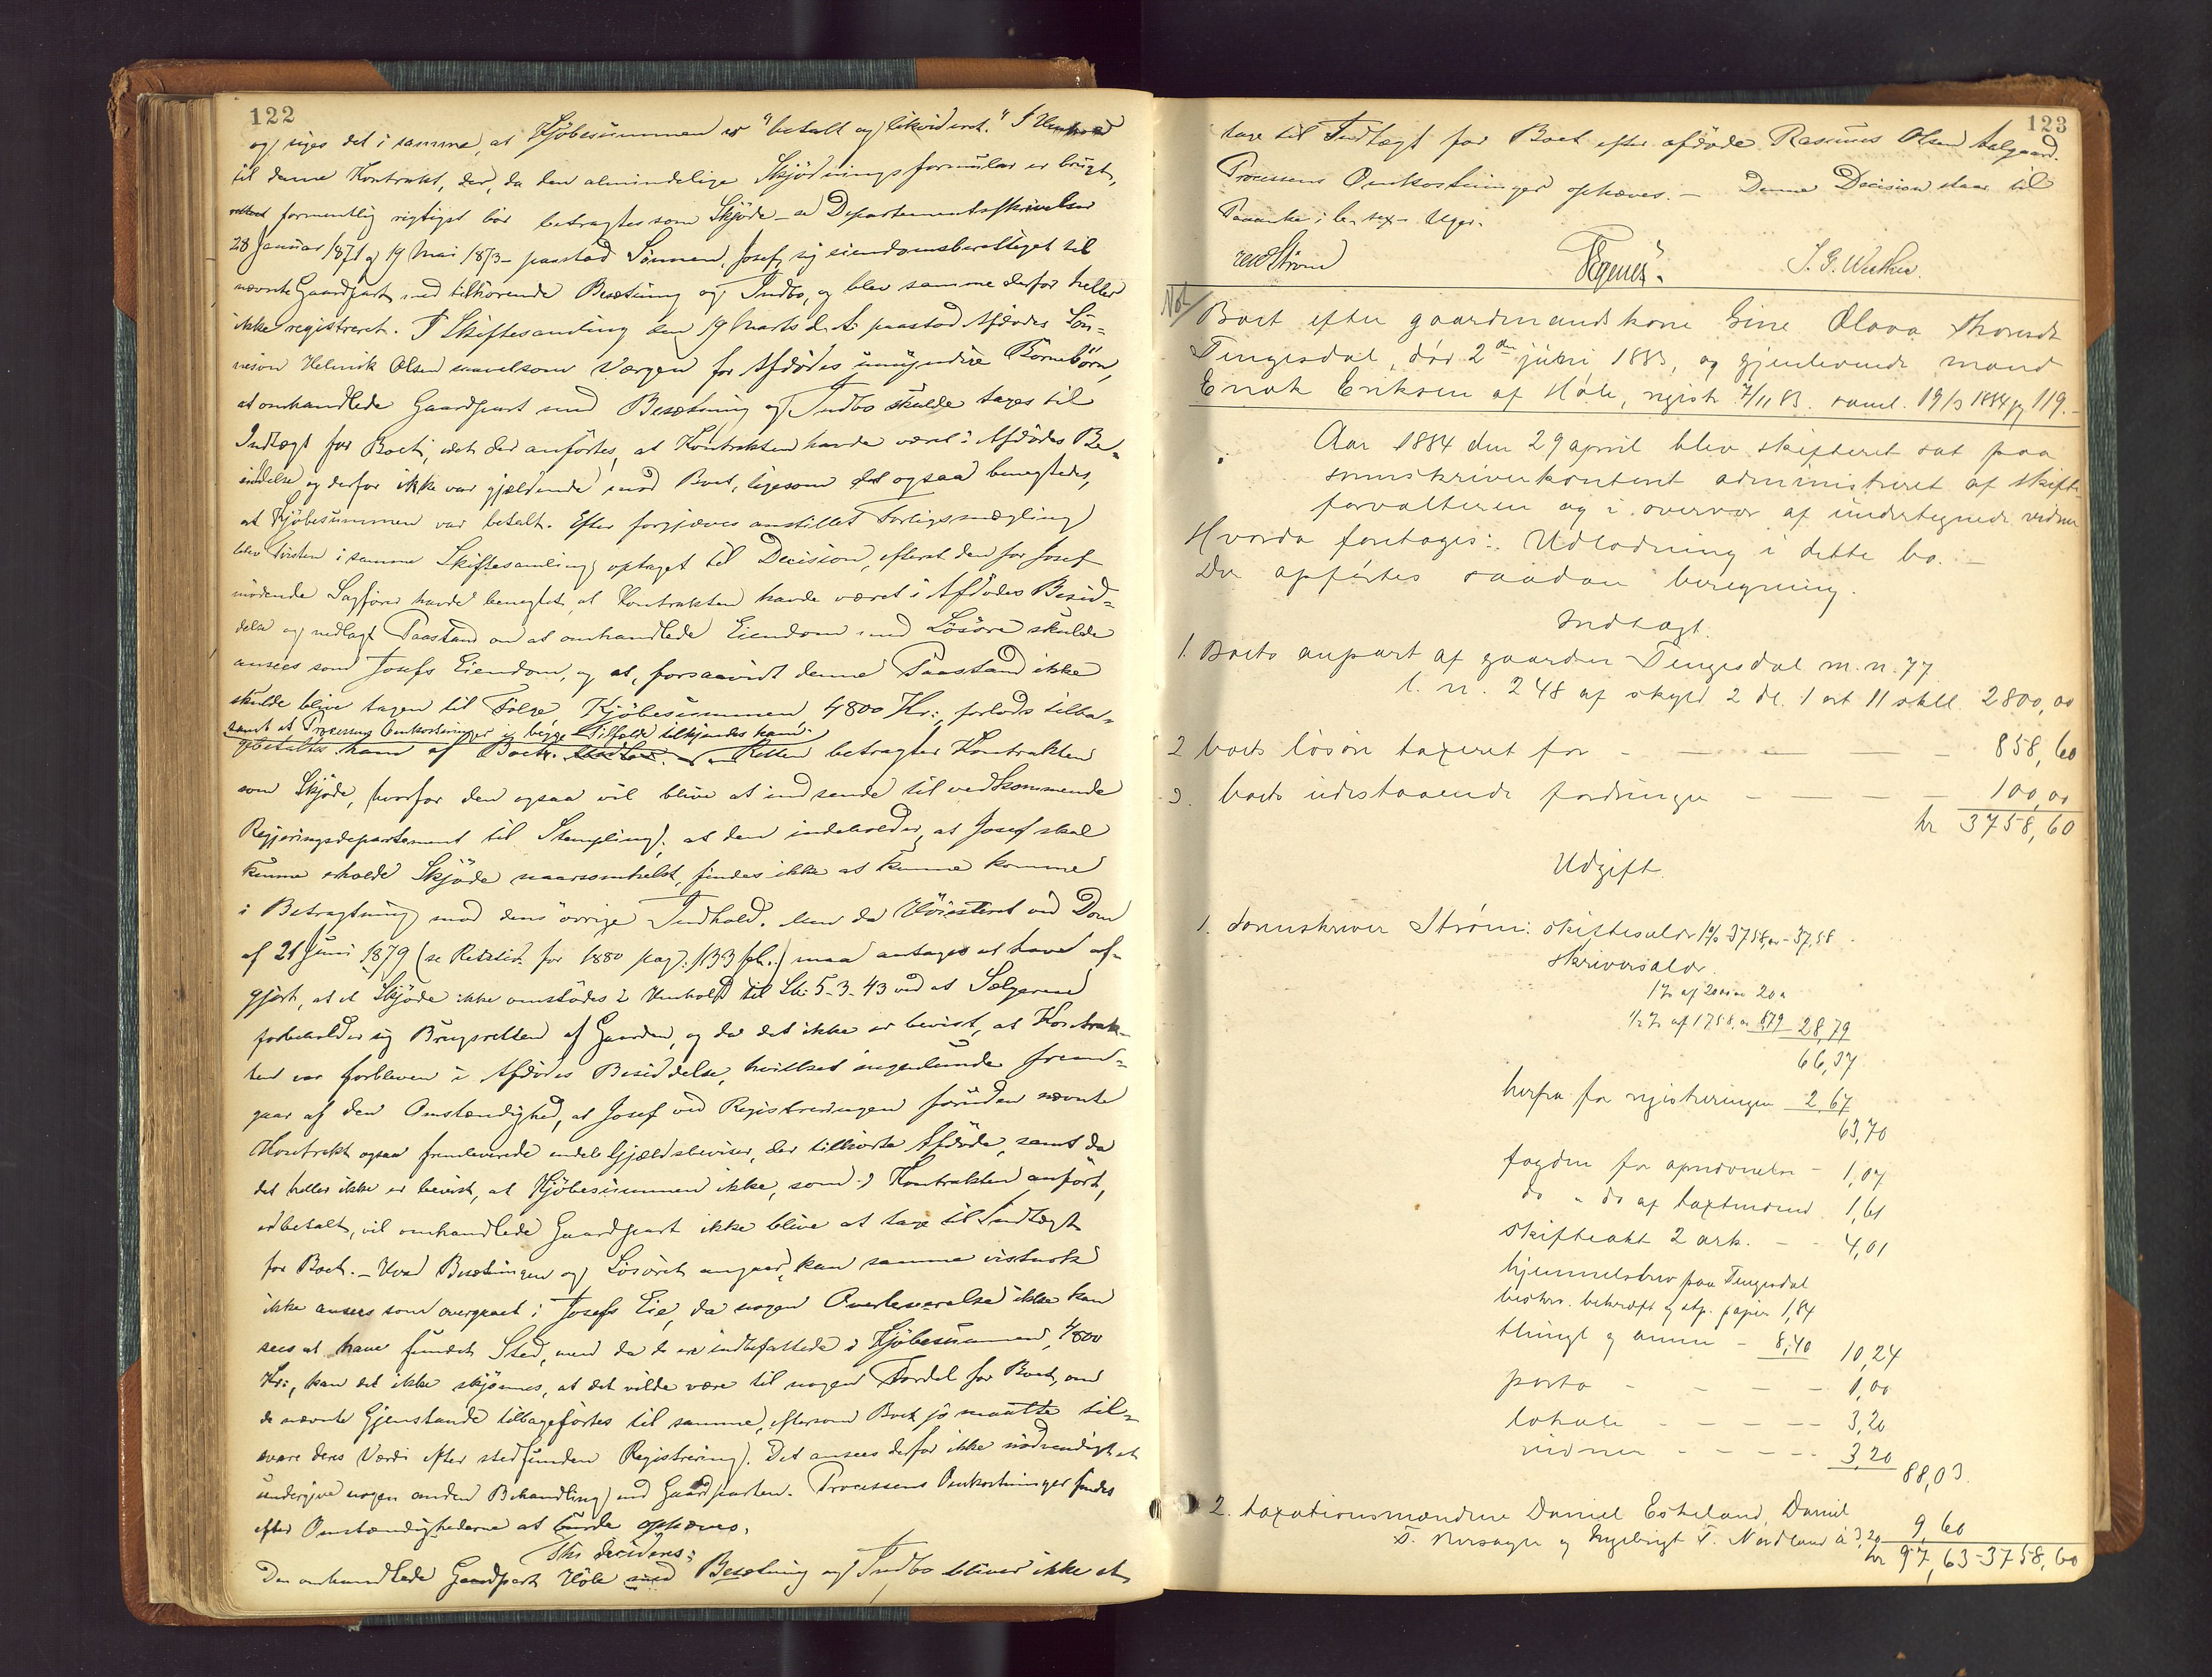 122
og siges det i samme, at Kjöbesummen er "betalt og likvideret." I Henhold
til denne Kontrakt, der, da den almindelige Skjödningsformular er brugt,
formentlig rigtigst bör betragtes som Skjöde – se Departementsskrivelser
28 Januar 1871 og 19 Mai 1873 – paastod Sönnen, Josef, sig eiendomsberettiget til
nævnte Gaardpart med tilhörende Besætning og Indbo, og blev samme derfor heller
ikke registreret. I Skiftesamling den 19 Marts d. A. paastod Afdödes Sön-
nesön Helmik Olsen saavelsom Værgen for Afdödes umyndige Börnebörn,
at omhandlede Gaardpart med Besætning og Indbo skulde tages til
Indtægt for Boet, idet der anförtes, at Kontrakten havde været i Afdödes Be-
siddelse og derfor ikke var gjældende mod Boet, ligesom det ogsaa benegtedes,
at Kjöbesummen var betalt. Efter forgjæves anstillet Forligsmægling
blev Tvisten i samme Skiftesamling optaget til Decision, efterat den for Josef
mödende Sagförer havde benegtet, at Kontrakten havde været i Afdödes Besid-
delse og nedlagt Paastand om at omhandlede Eiendom med Lösöre skulde
ansees som Josefs Eiendom, og at, forsaavidt denne Paastand ikke
skulde blive tagen til Fölge Kjöbesummen, 4800 Kr:, forlods tilba-
samt at Processens Omkostninger i begge Tilfælde tilkjendes ham.
gebetales ham af Boet. Retten betragter Kontrakten
som Skjöde, hvorfor den ogsaa vil blive at indsende til vedkommende
Regjeringsdepartement til Stempling; at den indeholder, at Josef skal
kunne erholde Skjöde naarsomhelst, findes ikke at kunne komme
i Betragtning mod dens övrige Indhold. Men da Höiesteret ved Dom
af 21 Juni 1879 (se Retstid. for 1880 pag. 133 flg.) maa antages at have af-
gjort, at et Skjöde ikke omstödes i Henhold til Lb: 5-3-43 ved at Sælgeren
forbeholder sig Brugsretten af Gaarden, og da det ikke er bevist, at Kontrak-
ten var forbleven i Afdödes Besiddelse, hvilket ingenlunde frem-
gaar af den Omstændighed, at Josef ved Registreringen foruden nævnte
Kontrakt ogsaa fremleverede endel Gjældsbeviser, der tilhörte Afdöde, samt da
det heller ikke er bevist, at Kjöbesummen ikke, som i Kontrakten anfört,
er betalt, vil omhandlede Gaardpart ikke blive at tage til Indtægt
for Boet. – Hvad Besætningen og Lösöret angaar, kan samme vistnok
ikke ansees som overgaaet i Josefs Eie, da nogen Overleverelse ikke kan
sees at have fundet Sted, men da de er indbefattede i Kjöbesummen, 4800
Kr:, kan det ikke skjönnes, at det vilde være til nogen Fordel for Boet, om
de nævnte Gjenstande tilbageförtes til samme, eftersom Boet jo maatte til-
svare deres Værdi efter stedfunden Registrering. Det ansees derfor ikke nödvendigt at
undergive nogen anden Behandling end Gaardparten. Processens Omkostninger findes
efter Omstændighederne at burde ophæves.
Thi decideres:
Den omhandlede Gaardpart Höle med Besætning og Indbo bliver ikke at
123
tage til Indtægt for Boet efter afdöde Rasmus Olsen Aalgaard.
Processens Omkostninger ophæves. – Denne Decision staar til
Paaanke i sex Uger.
Ström
Tegnes.
No
Boet efter gaardmandskone Gine Olava
Tengesdal, död 2den juni 1883, og gjenlevende mand
Enok Eriksen af Höle, regist. 7/11 83. saml. 19/3 1884 pg 119.
Aar 1884 den 29 april blev skifteret sat paa
sorenskriverkontoret administreret af skifte
forvalteren og i overvær af undertegnede vidner
Hvorda foretoges: Udlodning i dette bo. –
Der opförtes saadan beregning.
Indtægt.
1. Boets anpart af gaarden Tengesdal m. n. 77
l. n. 248 af skyld 2 dl. 1 ort 11 skll. 2800,00
2 boets lösöre taxeret for – – – – – 858,60
3. boets udestaaende fordringer – – – – 100,00
kr 3758,60
Udgift.
1. Sorenskriver Ström: skiftesalær 1% 3758,00 – 37,58
Skriversalær.
1% af 2000 20,00
1/2% af 1758,00 8,79 28,79
66,37
herfra for registreringen 2,67
63,70
fogden for opnævnelse – 1,07
do " do af taxtmænd 1,61
skifteakt 2 ark. – 4,01
hjemmelsbrev paa Tengesdal
beskrv. bekræft. og stp. papir 1,84
thingl. og anm – 8,40 10,24
porto – – – – 1,00
lokale – – – – 3,20
vidner – – – – 3,20
88,03
2. taxationsmændene Daniel Eskeland, Daniel
T. og Ingebrigt T. Nordland à 3,20 9,60
kr 97,63 – 3758,60